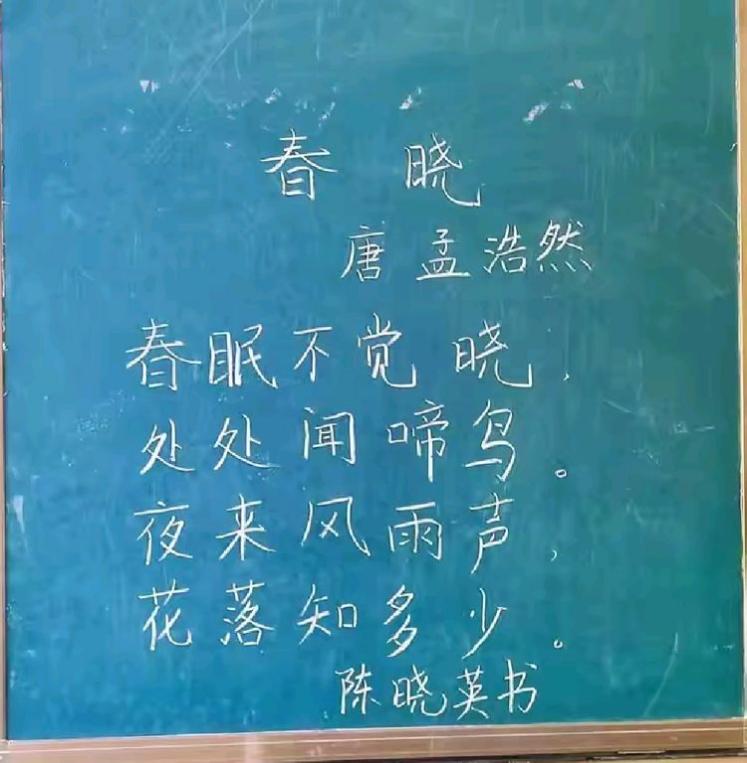 春晓
唐 孟浩然
春眠不觉晓，
处处闻啼鸟。
夜来风雨声，
花落知多少。
陈晓英书